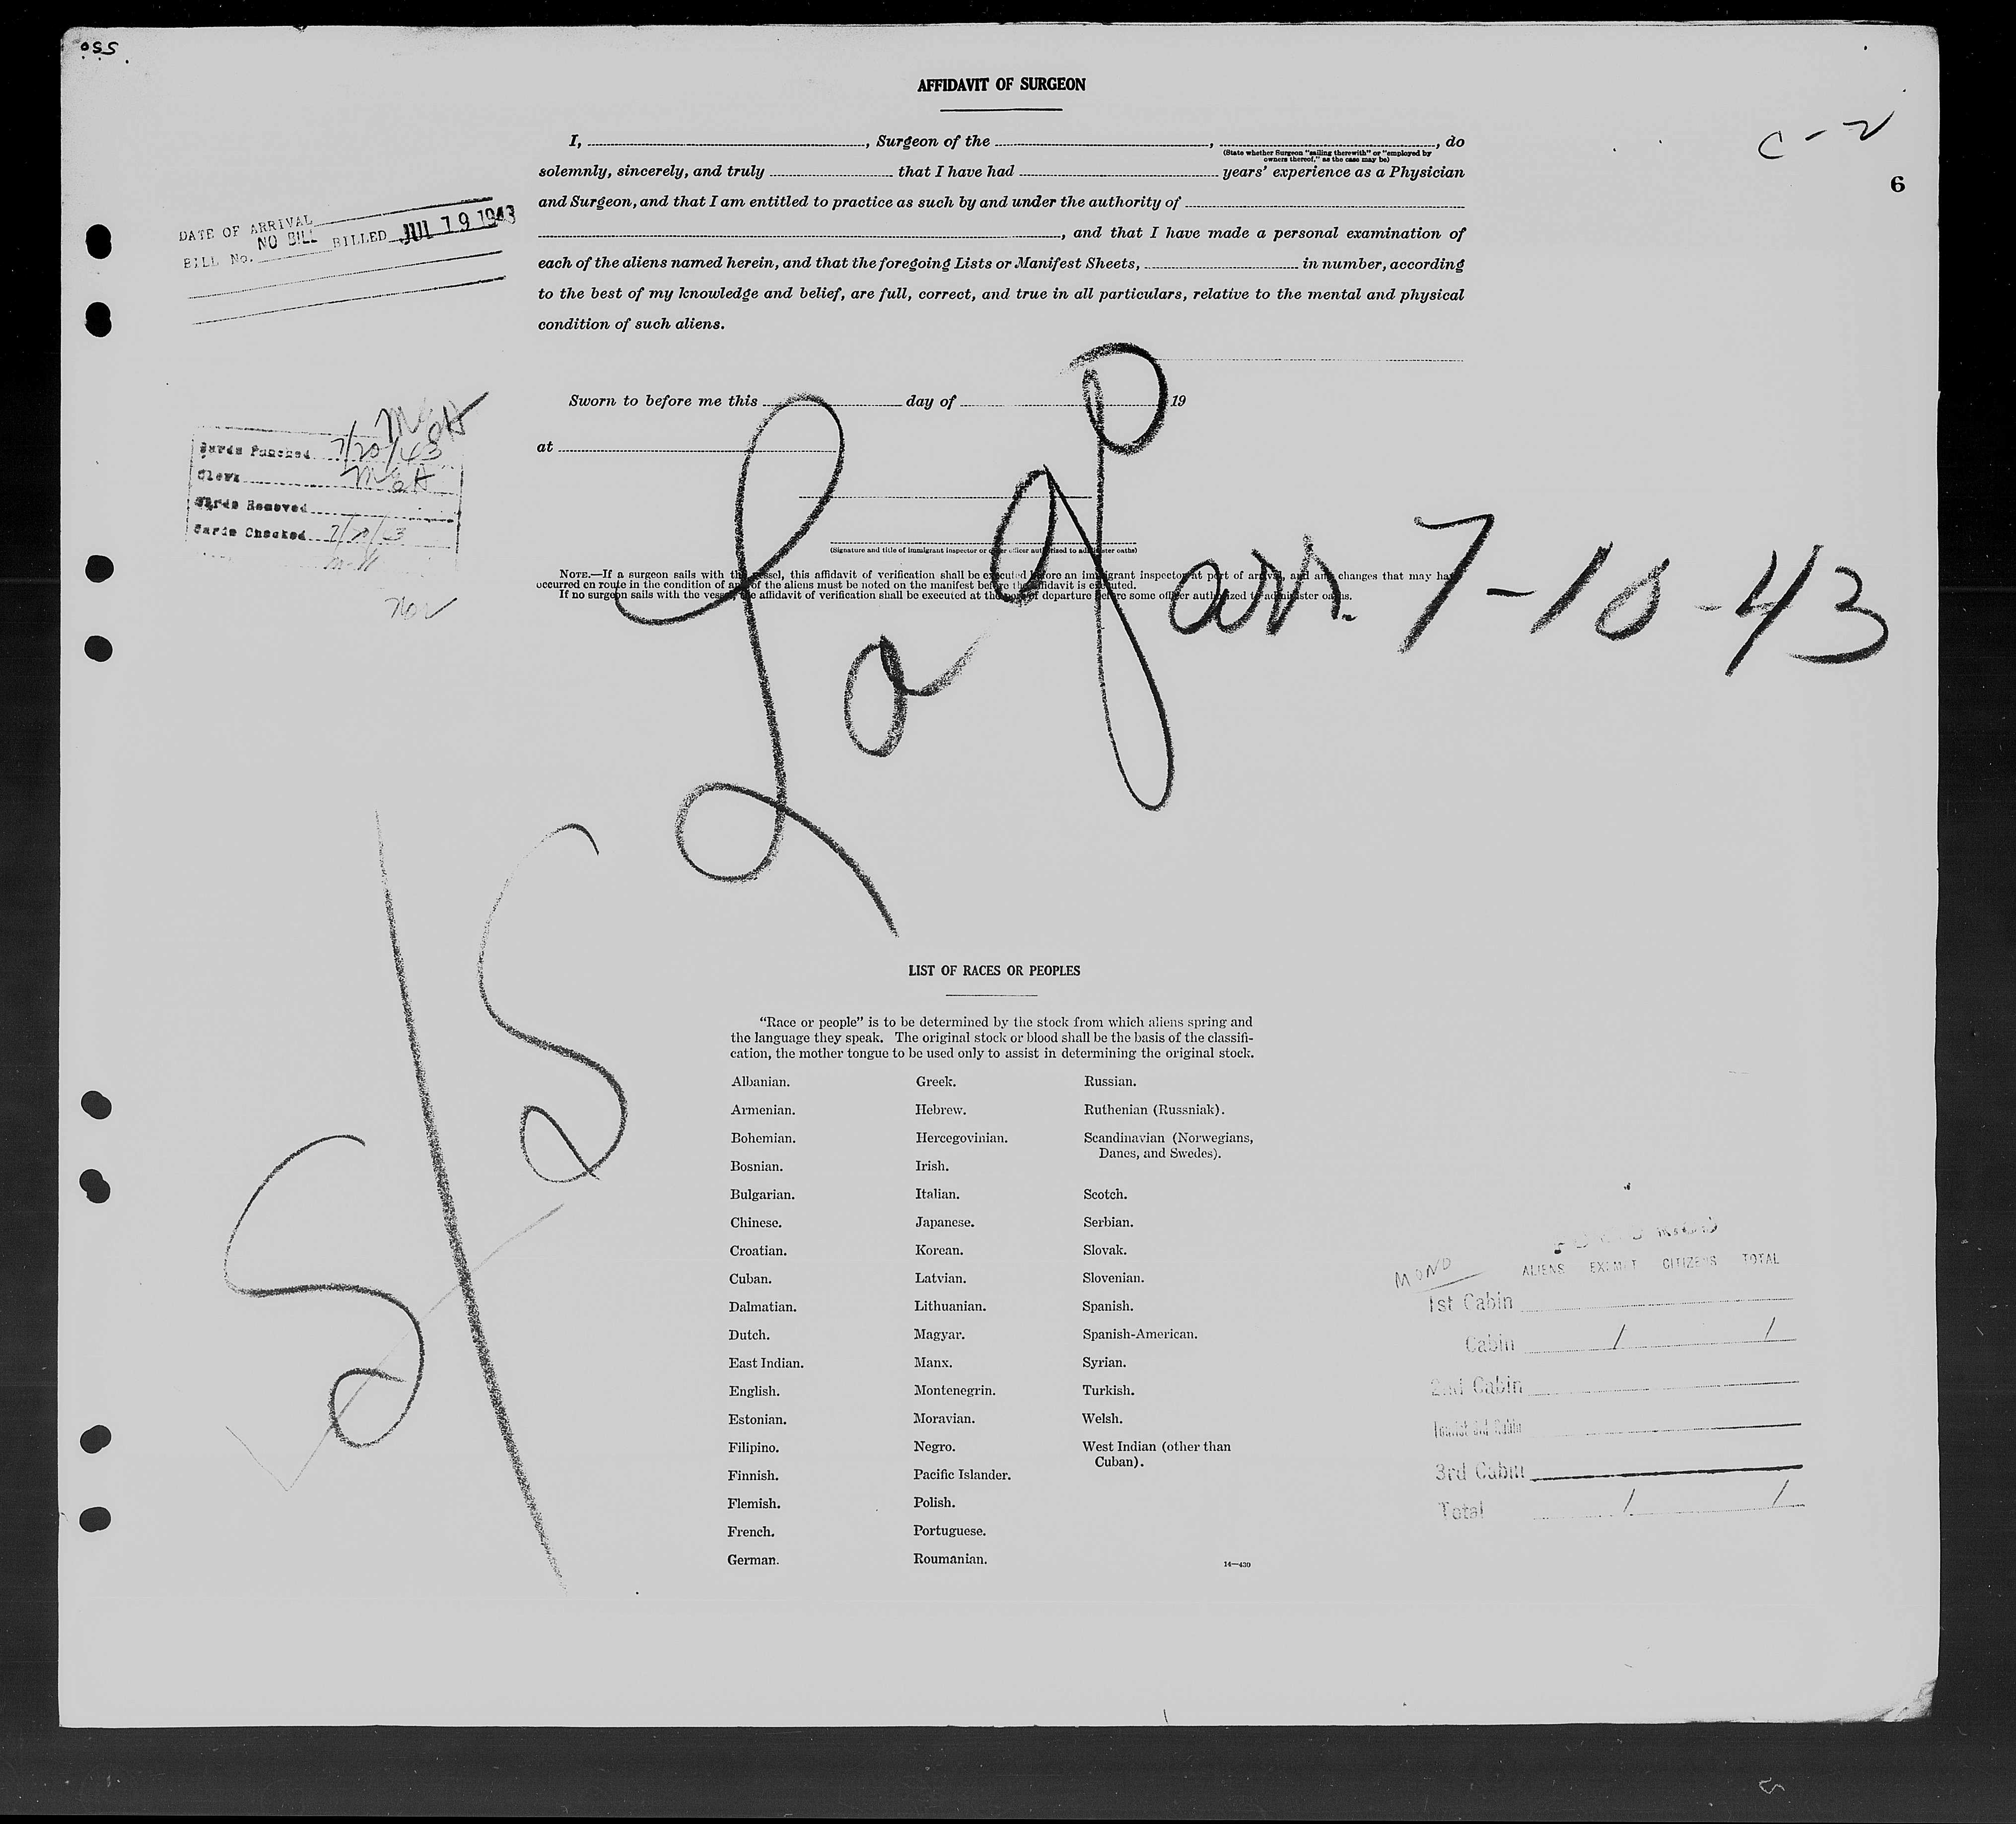 AFFIDAVIT OF SURGEON
C-2
6
I, , Surgeon of the , , do
(State whether Surgeon "sailing therewith" or "employed by
owners thereof," as the case may be)
solemnly, sincerely, and truly that I have had years' experience as a Physician
and Surgeon, and that I am entitled to practice as such by and under the authority of
, and that I have made a personal examination of
each of the aliens named herein, and that the foregoing Lists or Manifest Sheets, in number, according
to the best of my knowledge and belief, are full, correct, and true in all particulars, relative to the mental and physical
condition of such aliens.
DATE OF ARRIVAL
BILL No. NO BILL BILLED JUL 19 1943
Sworn to before me this day of 19
at
Cards Punched 7/20/43
Clerk
Cards Removed
Cards Checked
(Signature and title of immigrant inspector or other officer authorized to administer oaths)
NOTE.—If a surgeon sails with the vessel, this affidavit of verification shall be executed before an immigrant inspector at port of arrival, and any changes that may have
occurred en route in the condition of any of the aliens must be noted on the manifest before the affidavit is executed.
If no surgeon sails with the vessel, the affidavit of verification shall be executed at the port of departure before some officer authorized to administer oaths.
arr. 7-10-43
S/S
LIST OF RACES OR PEOPLES
"Race or people" is to be determined by the stock from which aliens spring and
the language they speak. The original stock or blood shall be the basis of the classifi-
cation, the mother tongue to be used only to assist in determining the original stock.
Albanian.
Armenian.
Bohemian.
Bosnian.
Bulgarian.
Chinese.
Croatian.
Cuban.
Dalmatian.
Dutch.
East Indian.
English.
Estonian.
Filipino.
Finnish.
Flemish.
French.
German.
Greek.
Hebrew.
Hercegovinian.
Irish.
Italian.
Japanese.
Korean.
Latvian.
Lithuanian.
Magyar.
Manx.
Montenegrin.
Moravian.
Negro.
Pacific Islander.
Polish.
Portuguese.
Roumanian.
Russian.
Ruthenian (Russniak).
Scandinavian (Norwegians,
Danes, and Swedes).
Scotch.
Serbian.
Slovak.
Slovenian.
Spanish.
Spanish-American.
Syrian.
Turkish.
Welsh.
West Indian (other than
Cuban).
14—430
ALIENS EXEMPT CITIZENS TOTAL
1st Cabin
Cabin 1 1
2nd Cabin
3rd Cabin
Total 1 1